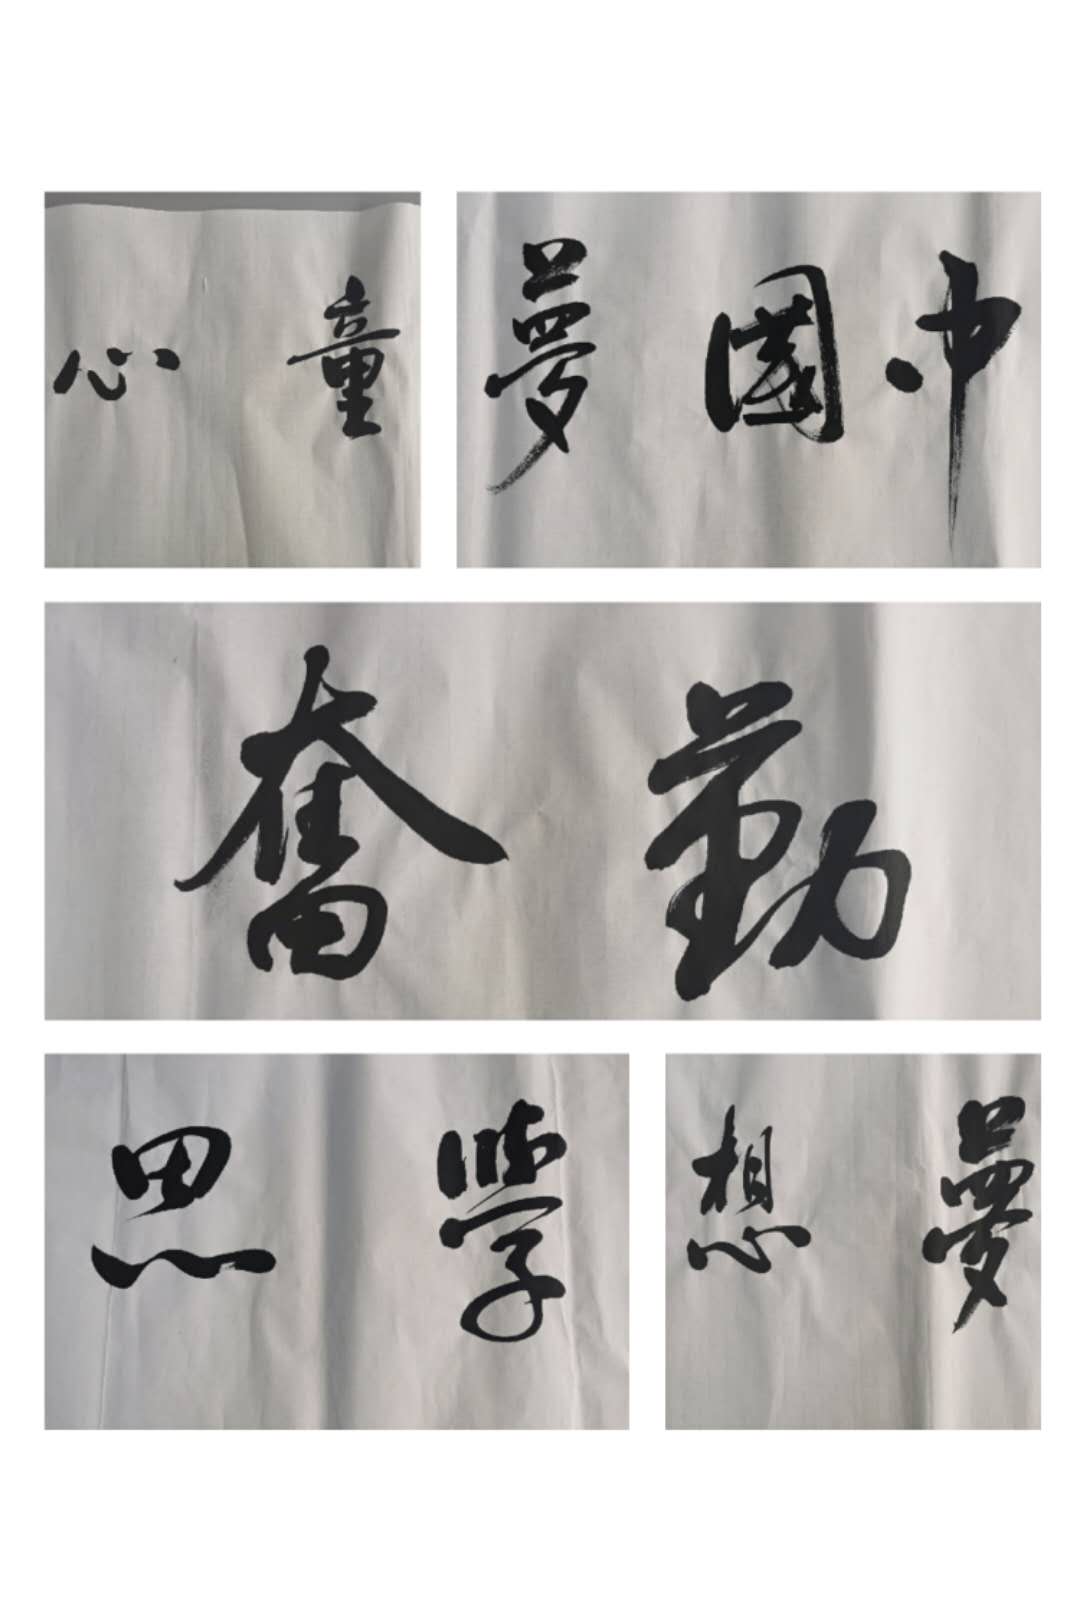 童心
中國夢
勤奮
學思
夢想